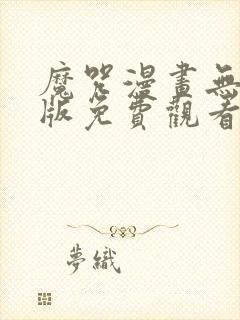 魔咒漫畫無
版免費觀看
夢織